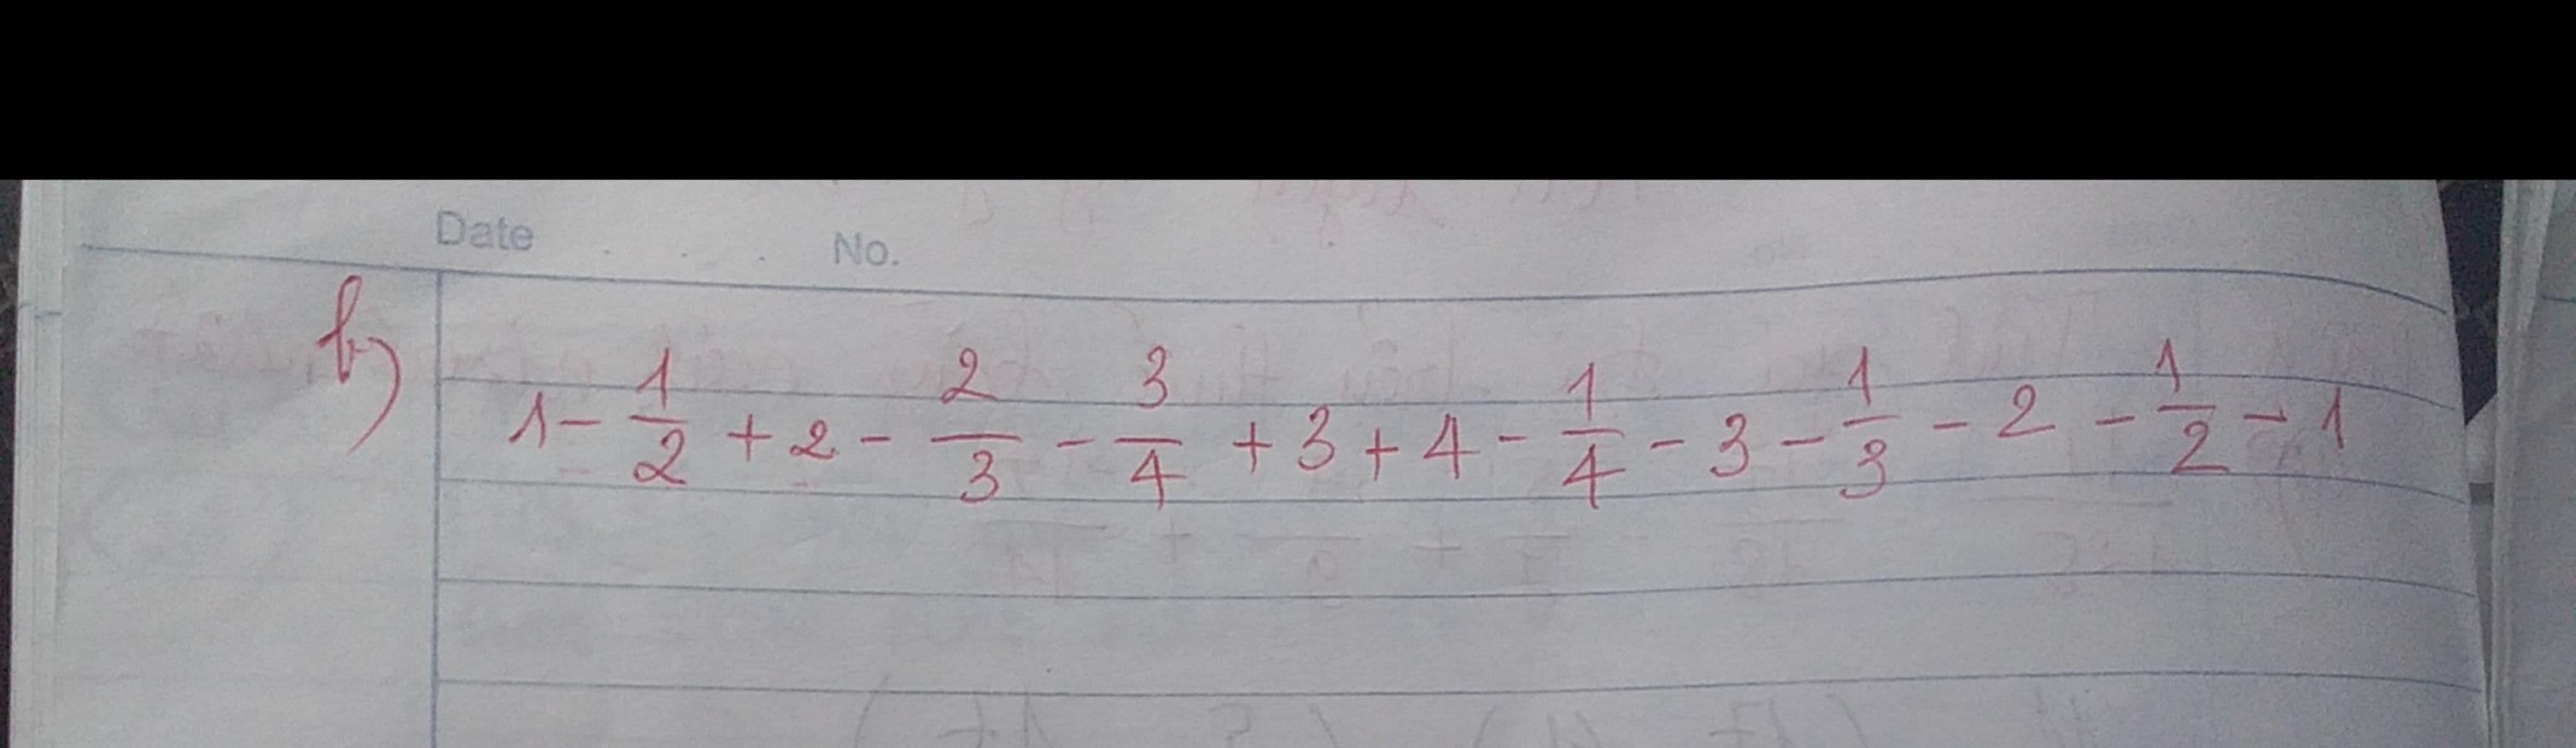 Date No.
b) 1 - 1/2 + 2 - 2/3 - 3/4 + 3 + 4 - 1/4 - 3 - 1/3 - 2 - 1/2 - 1